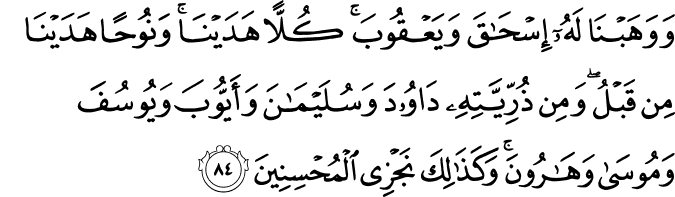 وَوَهَبْنَا لَهُۥٓ إِسْحَٰقَ وَيَعْقُوبَ ۚ كُلًّا هَدَيْنَا ۚ وَنُوحًا هَدَيْنَا
مِن قَبْلُ ۖ وَمِن ذُرِّيَّتِهِۦ دَاوُۥدَ وَسُلَيْمَٰنَ وَأَيُّوبَ وَيُوسُفَ
وَمُوسَىٰ وَهَٰرُونَ ۚ وَكَذَٰلِكَ نَجْزِى ٱلْمُحْسِنِينَ ٨٤